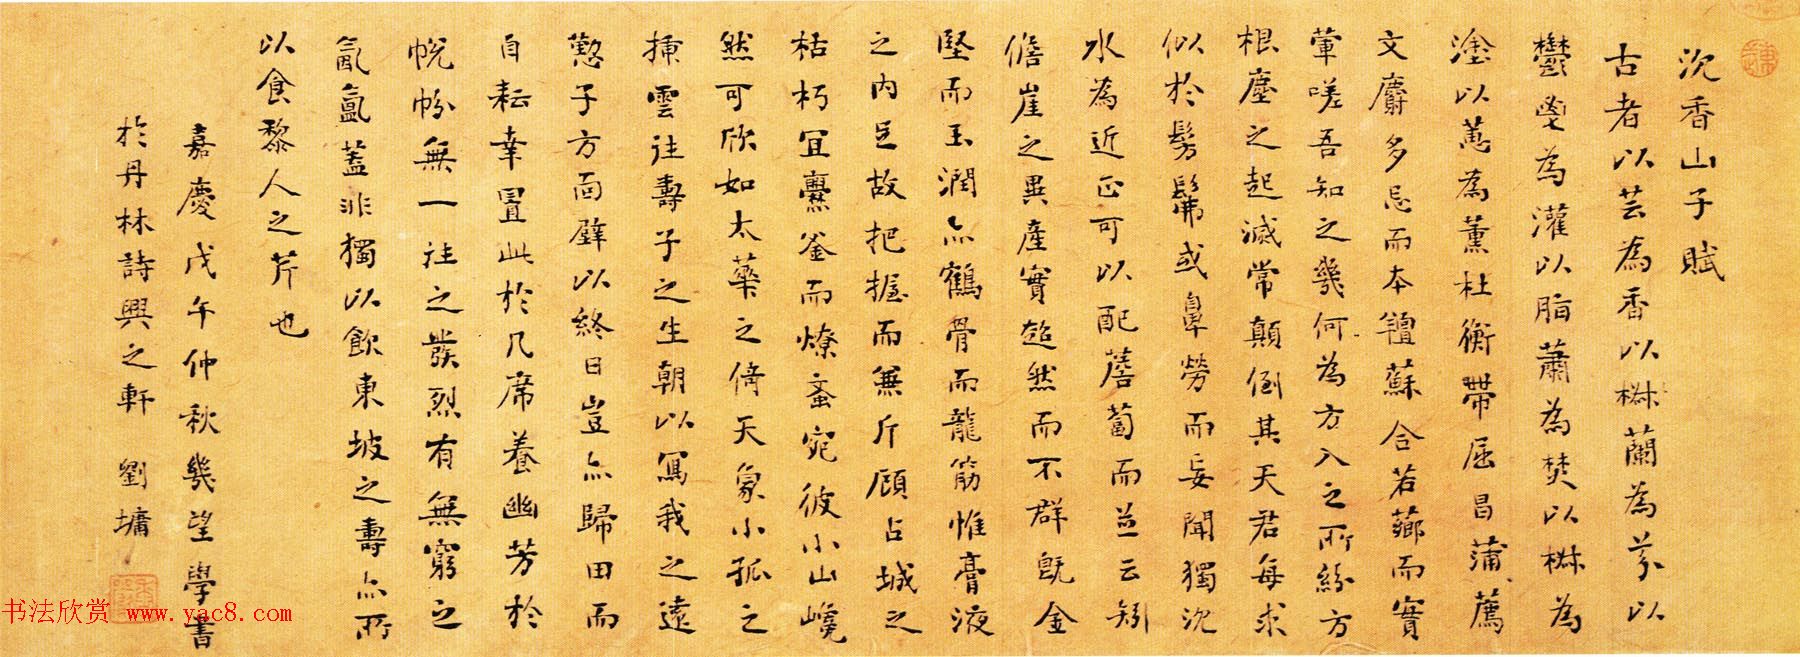 沉香山子賦
古者以芸為香以椒蘭為芬以
鬱鬯為灌以脂蕭為焚以椒為
塗以蕙為薰杜衡帶屈昌蒲薦
文麝多忌而本羶蘇合若薌而實
葷嗟吾知之幾何為方入之所紛方
根塵之起滅常顛倒其天君每求
似於髣髴或鼻勞而妄聞獨沉
水為近正可以配薝蔔而並云矧
儋崖之異產實超然而不群既金
堅而玉潤亦鶴骨而龍筋惟膏液
之內足故把握而兼斤顧占城之
枯朽宜爨釜而燎蚉宛彼小山巉
然可欣如太藥之倚天象小孤之
插雲往壽子之生朝以寫我之遠
懃子方面壁以終日豈亦歸田而
自耘幸置此於几席養幽芳於
帨帉無一往之發烈有無窮之
氤氳蓋非獨以飲東坡之壽亦所
以食黎人之芹也
嘉慶戊午仲秋幾望學書
於丹林詩興之軒 劉墉
书法欣赏 www.yac8.com